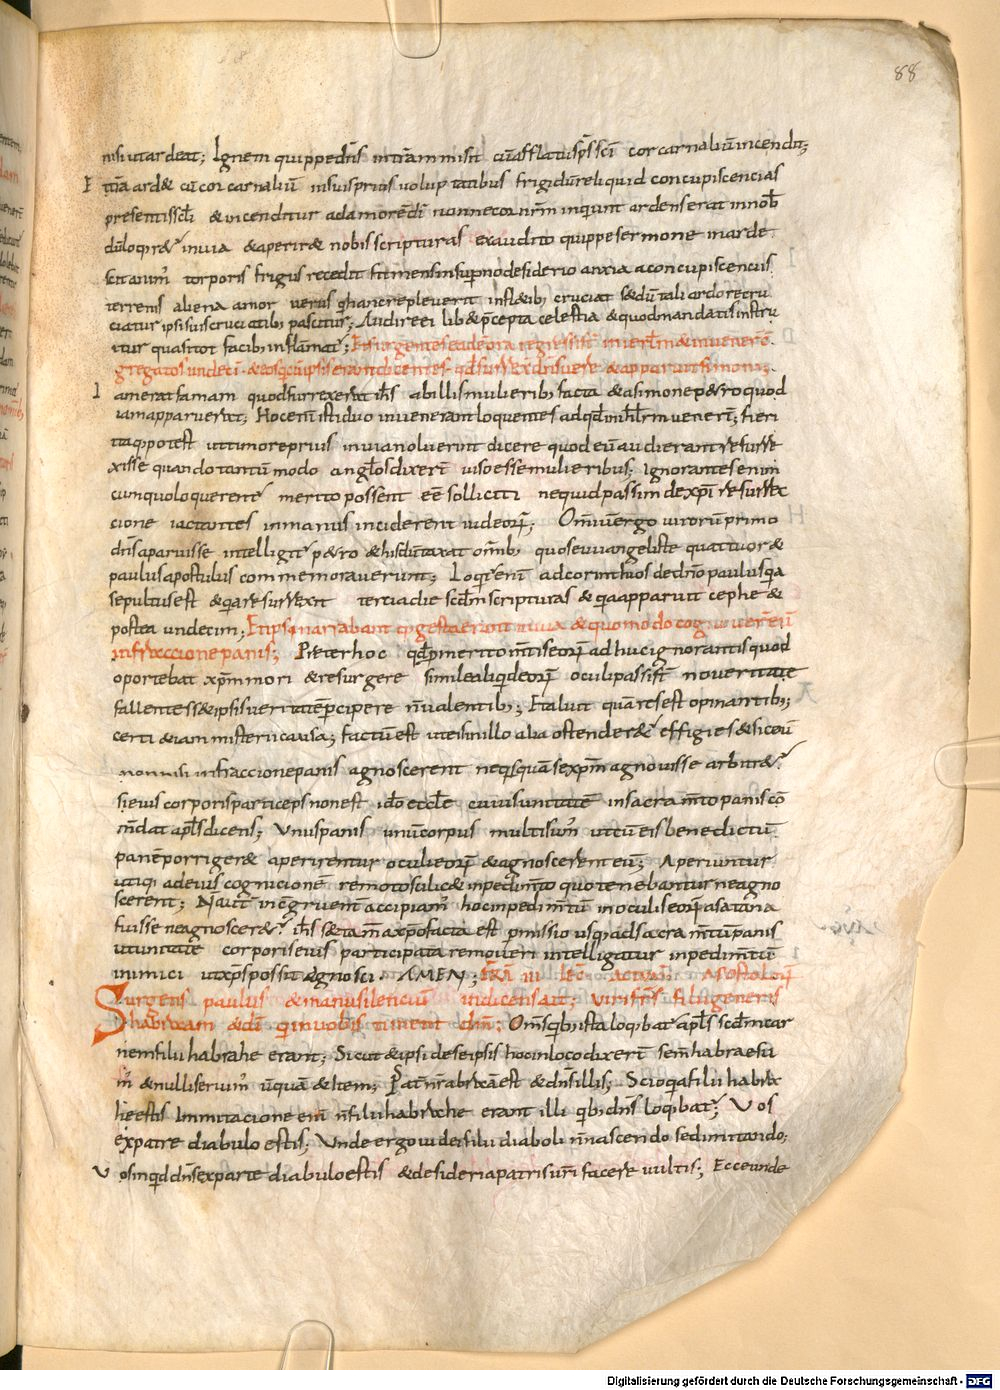 88
nisi ut ardeat; Ignem quippe dn̄s in tr̄am misit cū afflatu sp̄s sc̄i cor carnaliū incendit;
tr̄a ard& cū cor carnaliū in suis prius voluptatibus frigidū reliquid concupiscencias
presentis scl̄i & incenditur ad amorem dī nonne cor nr̄m inqunt ardens erat in nob̄
dū loq̄r&ʳ in via & aperir& nobis scripturas ex audito quippe sermone inarde
scit anim̄ torporis frigus recedit fit mens in sup̄no desiderio anxia a concupiscenciis
terrenis aliena amor verus q̄ hanc repleverit in fl&ib; cruciat s& dū tali ardore cru
ciatur ipsis suis cruciatib; pascitur; Audire ei lib& p̄cepta celestia & quod mandatis instru
itur quasi tot facib; inflam̄at; Et surgentes eadē ora regressi sr̄ in ierl̄m & invenerō
gregatos undeci & eos q̄ cū ipsis erant dicentes qd̄ surrex̄ dn̄s vere & apparuit simoni;
iam erat famam quod surrexerat ih̄s ab illis mulierib; facta & a simone p&ro quod
iam apparuerat; Hoc en̄ isti duo invenerant loquentes ad q̄d in ih̄rl̄m venerī; fieri
itaq; potest ut timore prius in via noluerint dicere quod eū audierant resurre
xisse quando tantū modo angl̄os dixerī viso esse mulieribus; Ignorantes enim
cum quo loquerent merito possent eē solliciti ne quid passim de xp̄i resurrex
cione iactantes in manus inciderent iudeorꝫ; Om̄iū ergo virorū primo
dn̄s aparuisse intelligit p&ro & his dūtaxat om̄ib; quos evvangeliste quattuor &
paulus apostulus commemoraverunt; Loq̄r enī ad corinthios de dn̄o paulus q̄a
sepultus est & q̄a resurrexit tercia die scd̄m scripturas & q̄a apparuit cephe &
postea undecim; Et ipsi narrabant q̄ gesta erant in via & quomodo cognoverē eū
in fraccione panis; Preter hoc qd̄ p merito m̄tis eorꝫ adhuc ignorantis quod
oportebat xp̄m mori & resurgere simile aliq̄d eorꝫ oculi passi sr̄ non veritate
fallente s& ipsis veritatē p̄cipere n̄ valentib; & aliut quā res est opinantib;
certi &iam misterii causa; factū est ut eis in illo alia ostender&ʳ effigies & sic eū
non nisi in fraccione panis agnoscerent ne q̄squā se xp̄m agnovisse arbitr&ʳ
si eius corporis particeps non est id̄o eccl̄e cuius unitatē in sacram̄to panis cō
m̄dat apl̄s dicens; Unus panis unū corpus multi sum̄ ut cū eis benedictū
panē porriger& aperirentur oculi eorꝫ & agnoscerent eum; Aperiuntur
utiq; ad eius cognicionē remoto scilic& inpedim̄to quo tenebantur ne agno
scerent; N̄ aut̄ incōgruent̄ accipiam̄ hoc inpedim̄tū in oculis eorꝫ a satana
fuisse ne agnoscer&ʳ ih̄s s& tam̄ a xp̄o facta est p̄missio usq; ad sacram̄tum panis
ut unitatē corporis eius participata removeri intelligatur inpedim̄tū
inimici ut xp̄s possit agnosci. AMEN; FR̄A III LEC̄ ACTUŪ APOSTOLORꝫ
Surgens paulus & manu silenciū indicens ait; Viri fr̄s filii generis
habraam & dī q̄ in vobis timent dm̄; Om̄s q̄b; ista loq̄bat apl̄s scd̄m car
nem filii habrahe erant; Sicut & ipsi de se ipsis hoc in loco dixerī sem̄ habrae su
m̄ & nulli servim̄ ūquā & Item; Pat̄ nr̄ abraā est & dn̄s illis; Scio q̄a filii habra
he estis Immitacione enī n̄ filii habrahe erant illi q̄b; dn̄s loq̄bat; Vos
ex patre diabulo estis; Unde ergo iudei filii diaboli n̄ nascendo sed imitando;
Vos inq̄d dn̄s ex parte diabulo estis & desideria patris uri facere vultis; Ecce unde
Digitalisierung gefördert durch die Deutsche Forschungsgemeinschaft - DFG